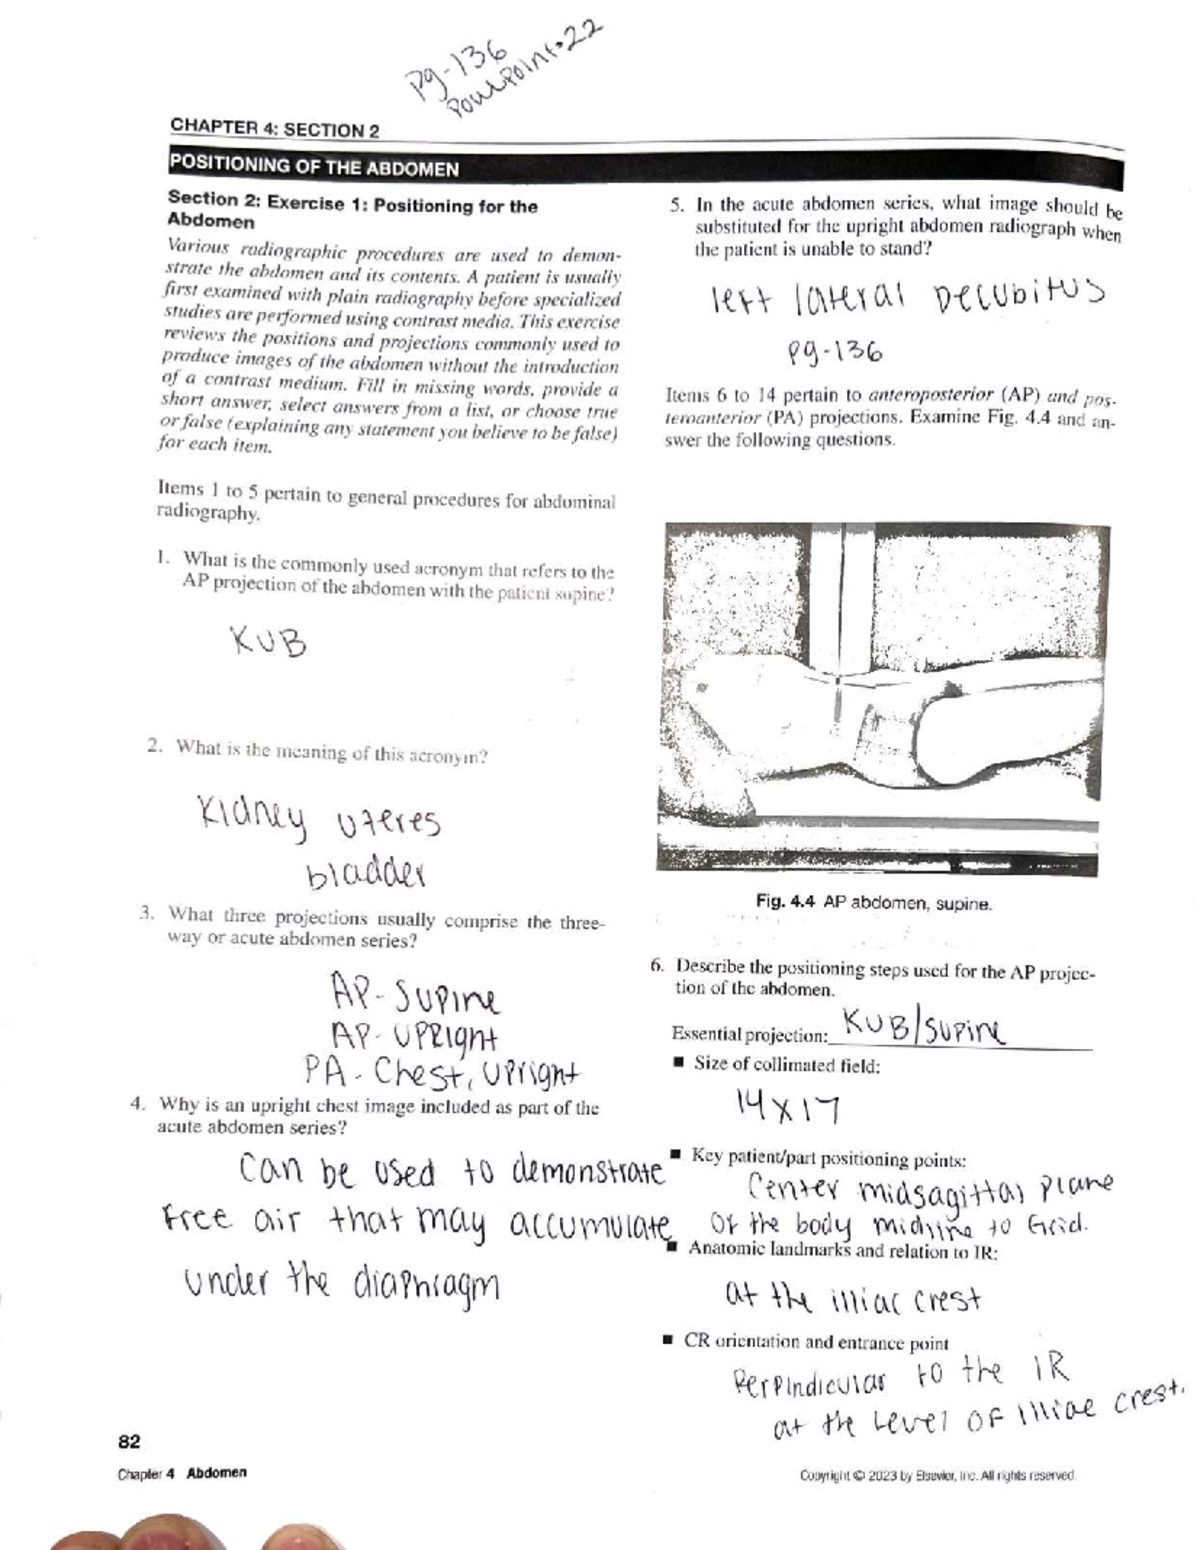 pg-136
PowrPoint-22
CHAPTER 4: SECTION 2
POSITIONING OF THE ABDOMEN
Section 2: Exercise 1: Positioning for the
Abdomen
Various radiographic procedures are used to demon-
strate the abdomen and its contents. A patient is usually
first examined with plain radiography before specialized
studies are performed using contrast media. This exercise
reviews the positions and projections commonly used to
produce images of the abdomen without the introduction
of a contrast medium. Fill in missing words, provide a
short answer, select answers from a list, or choose true
or false (explaining any statement you believe to be false)
for each item.
Items 1 to 5 pertain to general procedures for abdominal
radiography.
1. What is the commonly used acronym that refers to the
AP projection of the abdomen with the patient supine?
KUB
2. What is the meaning of this acronym?
Kidney uteres
bladder
3. What three projections usually comprise the three-
way or acute abdomen series?
AP-Supine
AP-UPRIght
PA-Chest, upright
4. Why is an upright chest image included as part of the
acute abdomen series?
Can be used to demonstrate
free air that may accumulate
under the diaphragm
5. In the acute abdomen series, what image should be
substituted for the upright abdomen radiograph when
the patient is unable to stand?
left lateral Decubitus
pg-136
Items 6 to 14 pertain to anteroposterior (AP) and pos-
teroanterior (PA) projections. Examine Fig. 4.4 and an-
swer the following questions.
Fig. 4.4 AP abdomen, supine.
6. Describe the positioning steps used for the AP projec-
tion of the abdomen.
Essential projection: KUB/supine
■ Size of collimated field:
14x17
■ Key patient/part positioning points:
Center midsagittal plane
of the body midline to Grid.
■ Anatomic landmarks and relation to IR:
at the illiac crest
■ CR orientation and entrance point
Perpindicular to the IR
at the level of illiac crest.
82
Chapter 4 Abdomen
Copyright © 2023 by Elsevier, Inc. All rights reserved.